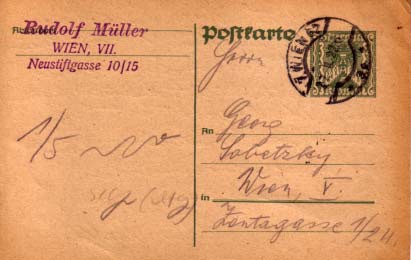 Rudolf Müller
WIEN, VII.
Neustiftgasse 10/15
Postkarte
Herrn
WIEN
An
Georg
Sobetzky
Wien, V.
in
Zentagasse 1/24.
1/5